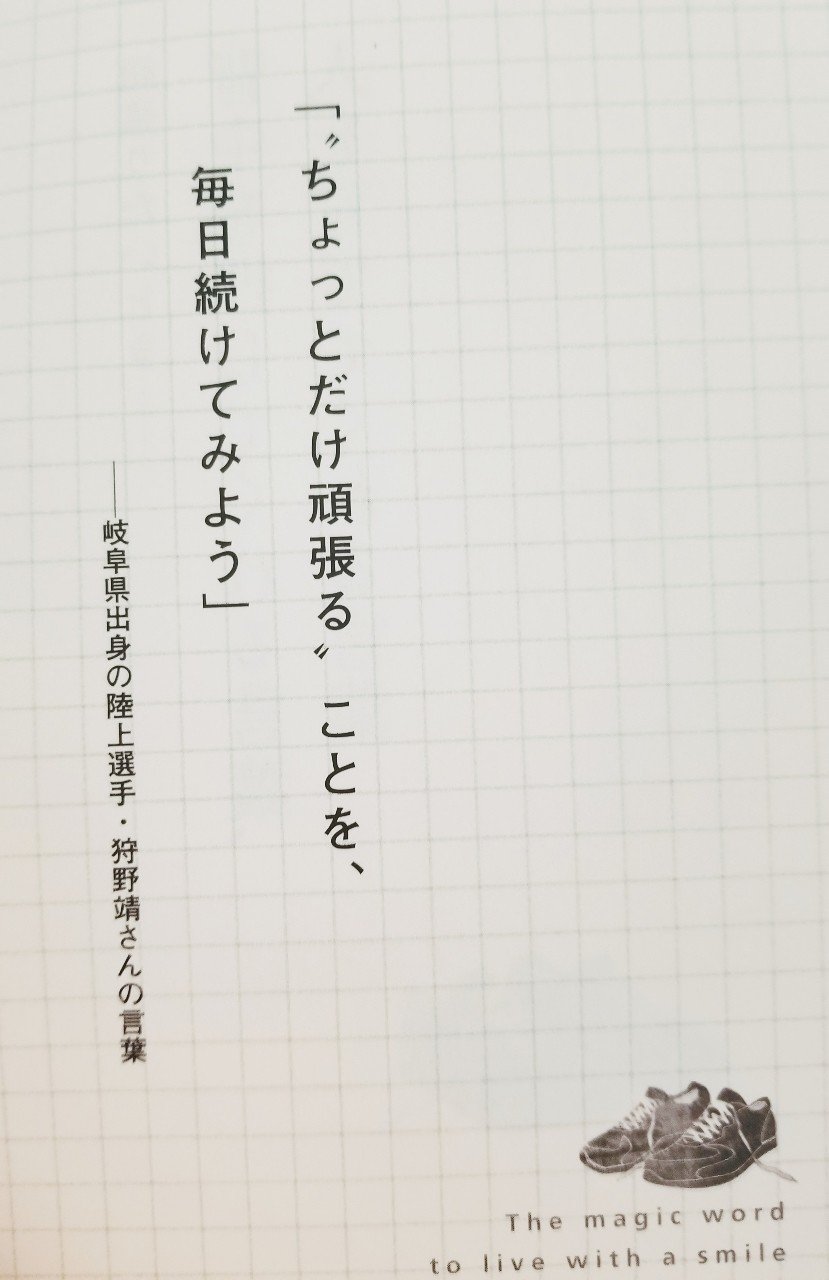 「〝ちょっとだけ頑張る〟ことを、
毎日続けてみよう」
――岐阜県出身の陸上選手・狩野靖さんの言葉
The magic word
to live with a smile